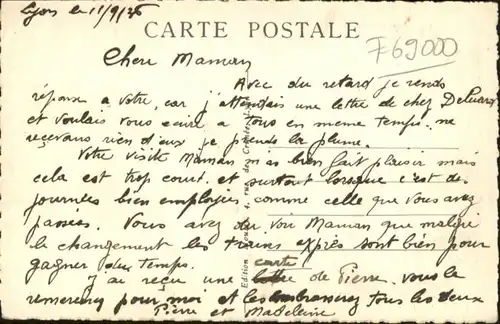 Lyon le 11/9/36
CARTE POSTALE
F69000
Chere Maman
Avec du retard je rends
réponse a votre, car j'attendais une lettre de chez
et voulais vous ecrire a tous en meme temps. ne
recevant rien d'eux je prends la plume.
Votre visite Maman m'as bien fait plaisir mais
cela est trop court. et surtout lorsque c'est des
journées bien employées comme celle que vous avez
passées. Vous avez du voir Maman que malgré
le changement les trains exprès sont bien pour
gagner du temps.
J'ai reçu une carte de Pierre. vous le
remercirez pour moi et les embrasserez tous les deux
Pierre et Madeleine
Edition